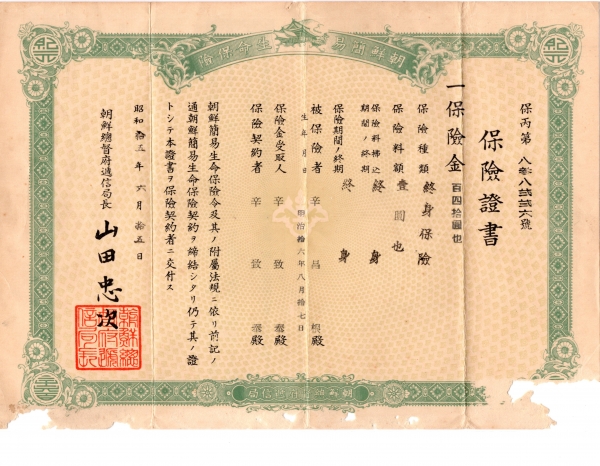 朝鮮簡易生命保險
保丙第 八參八貳貳六號
保險證書
一保險金 百四拾圓也
保險種類 終身保險
保險料額 壹圓也
保險料拂込期間ノ終期 終身
保險期間ノ終期 終身
被保險者 辛昌 殿
生年月日 明治拾六年八月拾七日
保險金受取人 辛致 殿
保險契約者 辛致 殿
朝鮮簡易生命保險令及其ノ附屬法規ニ依リ前記ノ
通朝鮮簡易生命保險契約ヲ締結シタリ仍テ其ノ證
トシテ本證書ヲ保險契約者ニ交付ス
昭和拾五年六月拾五日
朝鮮總督府遞信局長 山田忠次
朝鮮總督府遞信局長
朝鮮總督府遞信局